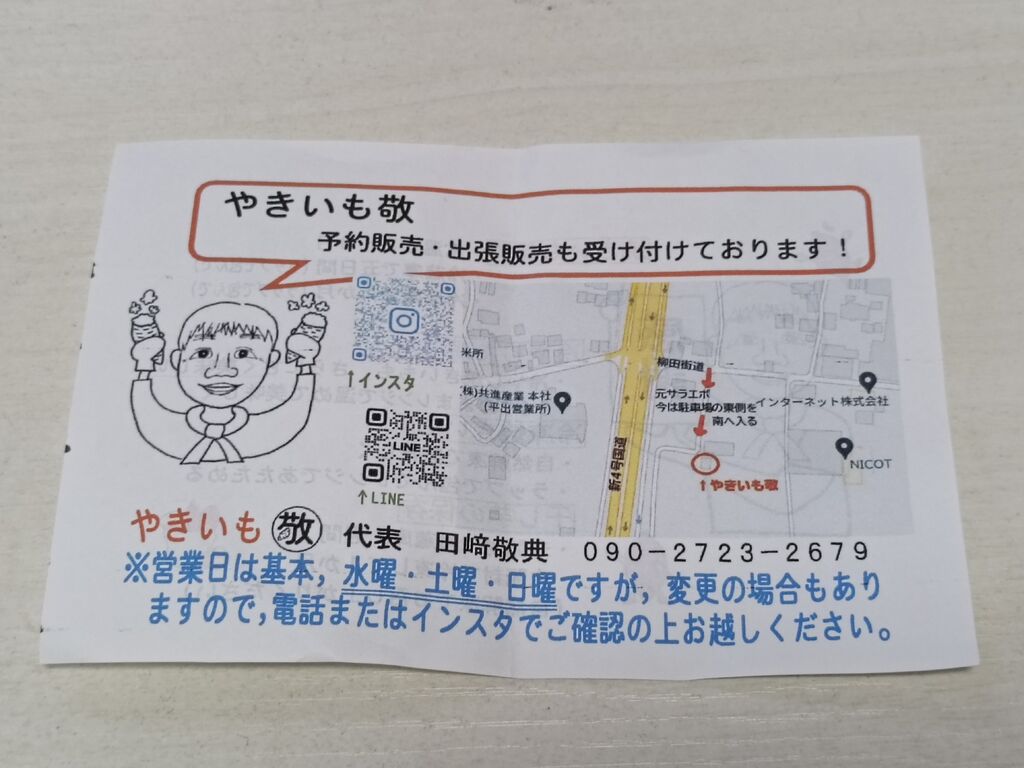 やきいも敬
予約販売・出張販売も受け付けております！
↑インスタ
LINE
↑LINE
米所
(株)共進産業 本社
(平出営業所)
柳田街道
元サラエボ
今は駐車場の東側を
南へ入る
インターネット株式会社
NICOT
新4号国道
↑やきいも敬
やきいも 敬 代表 田﨑敬典 090-2723-2679
※営業日は基本，水曜・土曜・日曜ですが，変更の場合もあり
ますので，電話またはインスタでご確認の上お越しください。